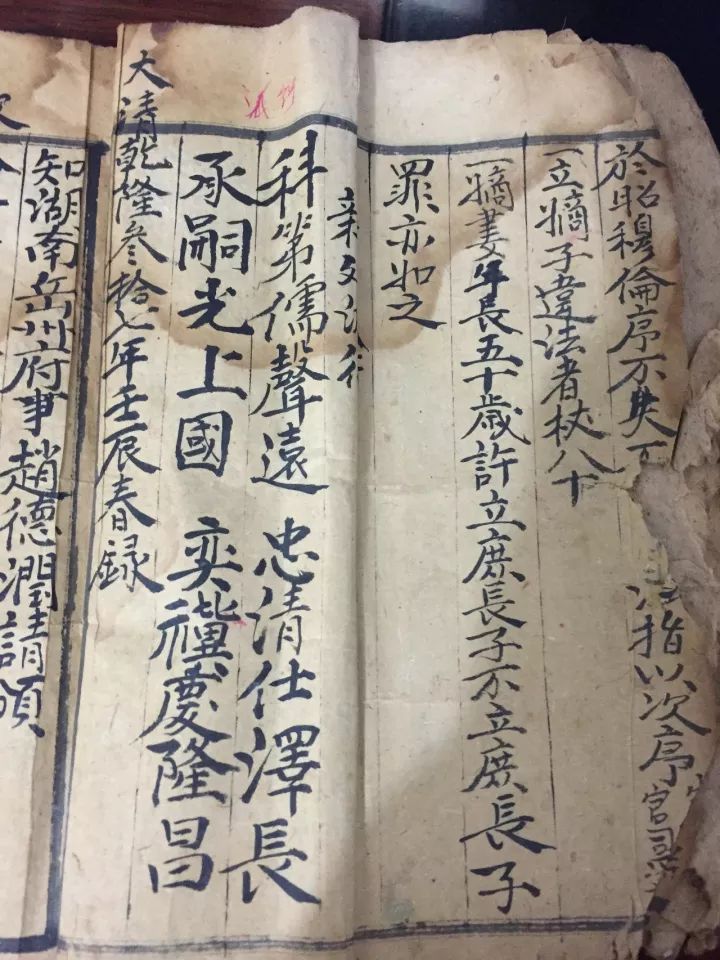 於昭穆倫序不失
指以次序
官司
一立嫡子違法者杖八十
一嫡妻年長五十歲許立庶長子不立庶長子
罪亦如之
科第儒聲遠 忠清仕澤長
承嗣光上國 奕禩慶隆昌
大清乾隆叁拾七年壬辰春録
知湖南岳州府事趙德潤請頒